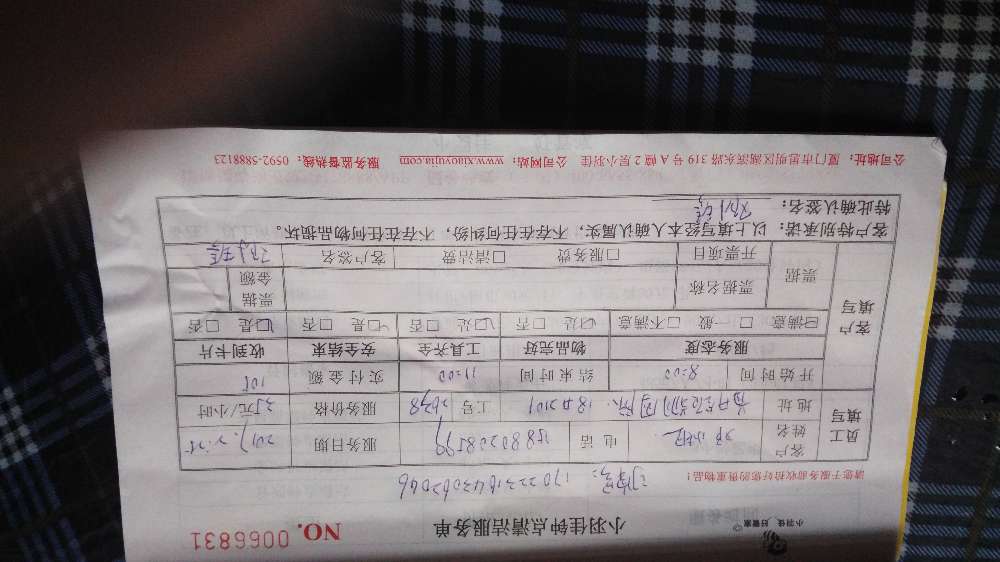 小羽佳 好管家
小羽佳钟点清洁服务单
NO. 0066831
请您于服务前收拾好您的贵重物品！
员工填写
客户姓名 电话 服务日期
地址 18 工号 2638 服务价格 35元/小时
开始时间 8:00 结束时间 11:00 实付金额 105
客户填写
服务态度 物品完好 工具齐全 安全结束 收到卡片
☑满意 □一般 □不满意 ☑是 □否 ☑是 □否 ☑是 □否 ☑是 □否
票据 票据名称 票据金额
开票项目 □服务费 □清洁费 客户签名
客户特别承诺：以上填写经本人确认属实，不存在任何纠纷，不存在任何物品损坏。
特此确认签名：
公司地址：厦门市思明区湖滨东路 319 号 A 幢 2 层小羽佳 公司网站：www.xiaoyujia.com 服务监督热线：0592-5888123